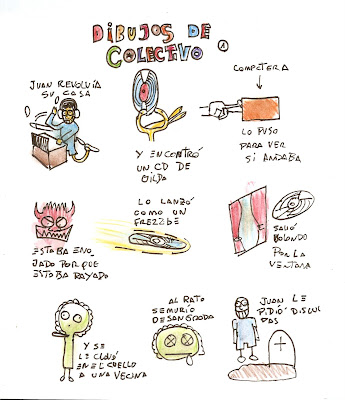 DIBUJOS DE
COLECTIVO
1
JUAN REVOLVIA
SU CASA
Y ENCONTRÓ
UN CD DE
GILDA
COMPETERA
LO PUSO
PARA VER
SI ANDABA
ESTABA ENO
JADO PORQUE
ESTABA RAYADO
LO LANZÓ
COMO UN
FREZZBE
SALIÓ
VOLONDO
POR LA
VENTANA
Y SE
LE CLAVÓ
EN EL CUELLO
A UNA VECINA
AL RATO
SE MURIÓ
DESANGRADA
JUAN LE
PIDIÓ DISCUL
PAS